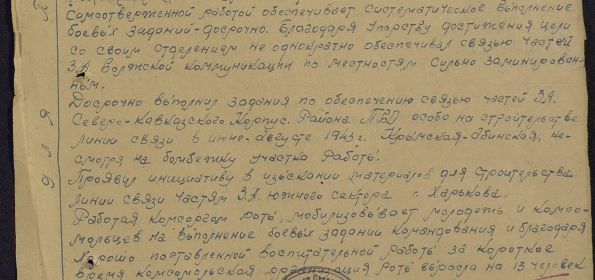 Самоотверженной работой обеспечивает систематическое выполнение
боевых заданий-досрочно. Благодаря упорству достижения цели
со своим отделением не однократно обеспечивал связью частей
ЗА Волжской коммуникации по местностям сильно заминирован-
ным.
Досрочно выполнил задания по обеспечению связью частей ЗА.
Северо-Кавказского Корпус. Района ПВО особо на строительстве
линии связи в июне-августе 1943г. Крымская-Абинская, не-
смотря на бомбежку участка работы.
Проявил инициативу в изыскании материалов для строительства
линии связи частям ЗА. южного сектора г. Харькова.
Работая комсоргом роты, мобилизовывает молодежь и комсо-
мольцев на выполнение боевых заданий командования и благодаря
хорошо поставленной воспитательной работы за короткое
время комсомольская организация роты выросла на 13 человек